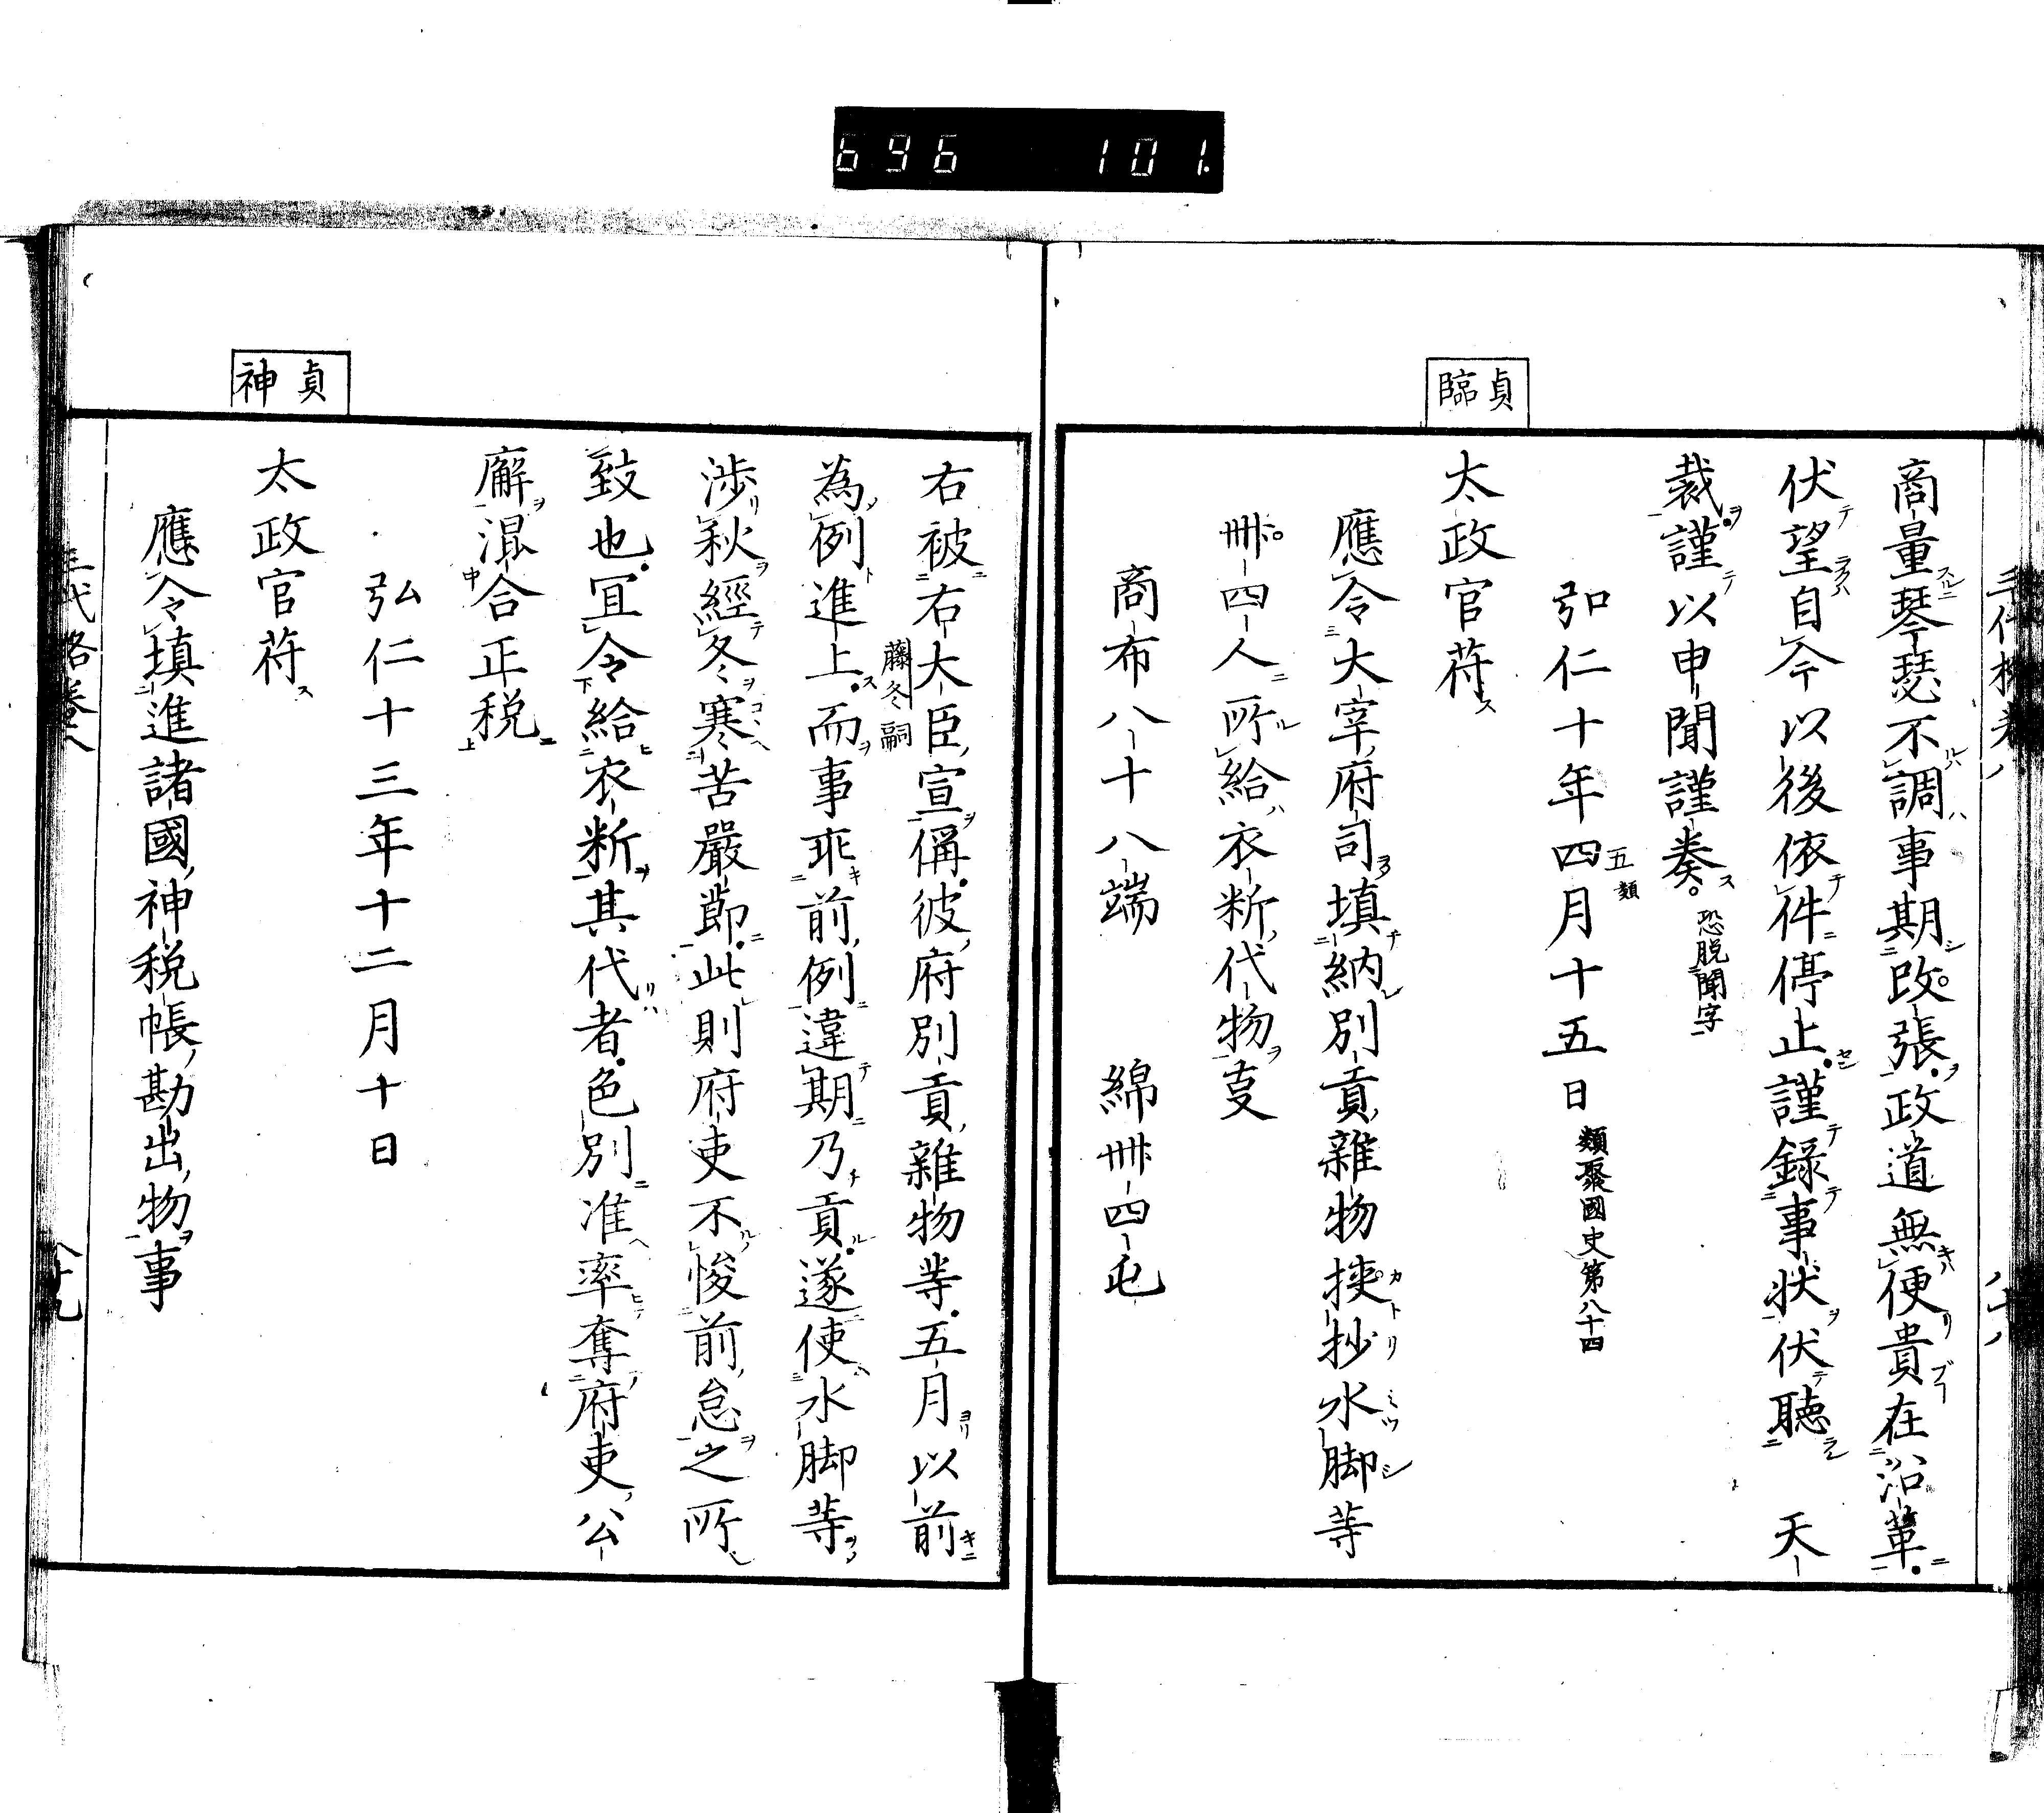 696 101.
貞臨
商量琴瑟不調事期改張政道無便貴在沿革
伏望自今以後依件停止謹録事状伏聴 天
裁謹以申聞謹奏 恐脱聞字
弘仁十年四月十五日 類聚國史第八十四
五類
太政官符
應令大宰府司填納別貢雜物挟抄水脚等
卌四人所給衣粁代物叓
商布八十八端 綿卌四屯
貞神
右被右大臣宣偁彼府別貢雜物等五月以前
藤冬嗣
為例進上而事乖前例違期乃貢遂使水脚等
渉秋經冬寒苦嚴節此則府吏不悛前怠之所
致也冝令給衣粁其代者色別准率奪府吏公
廨混合正税
弘仁十三年十二月十日
太政官符
應令填進諸國神税帳勘出物事